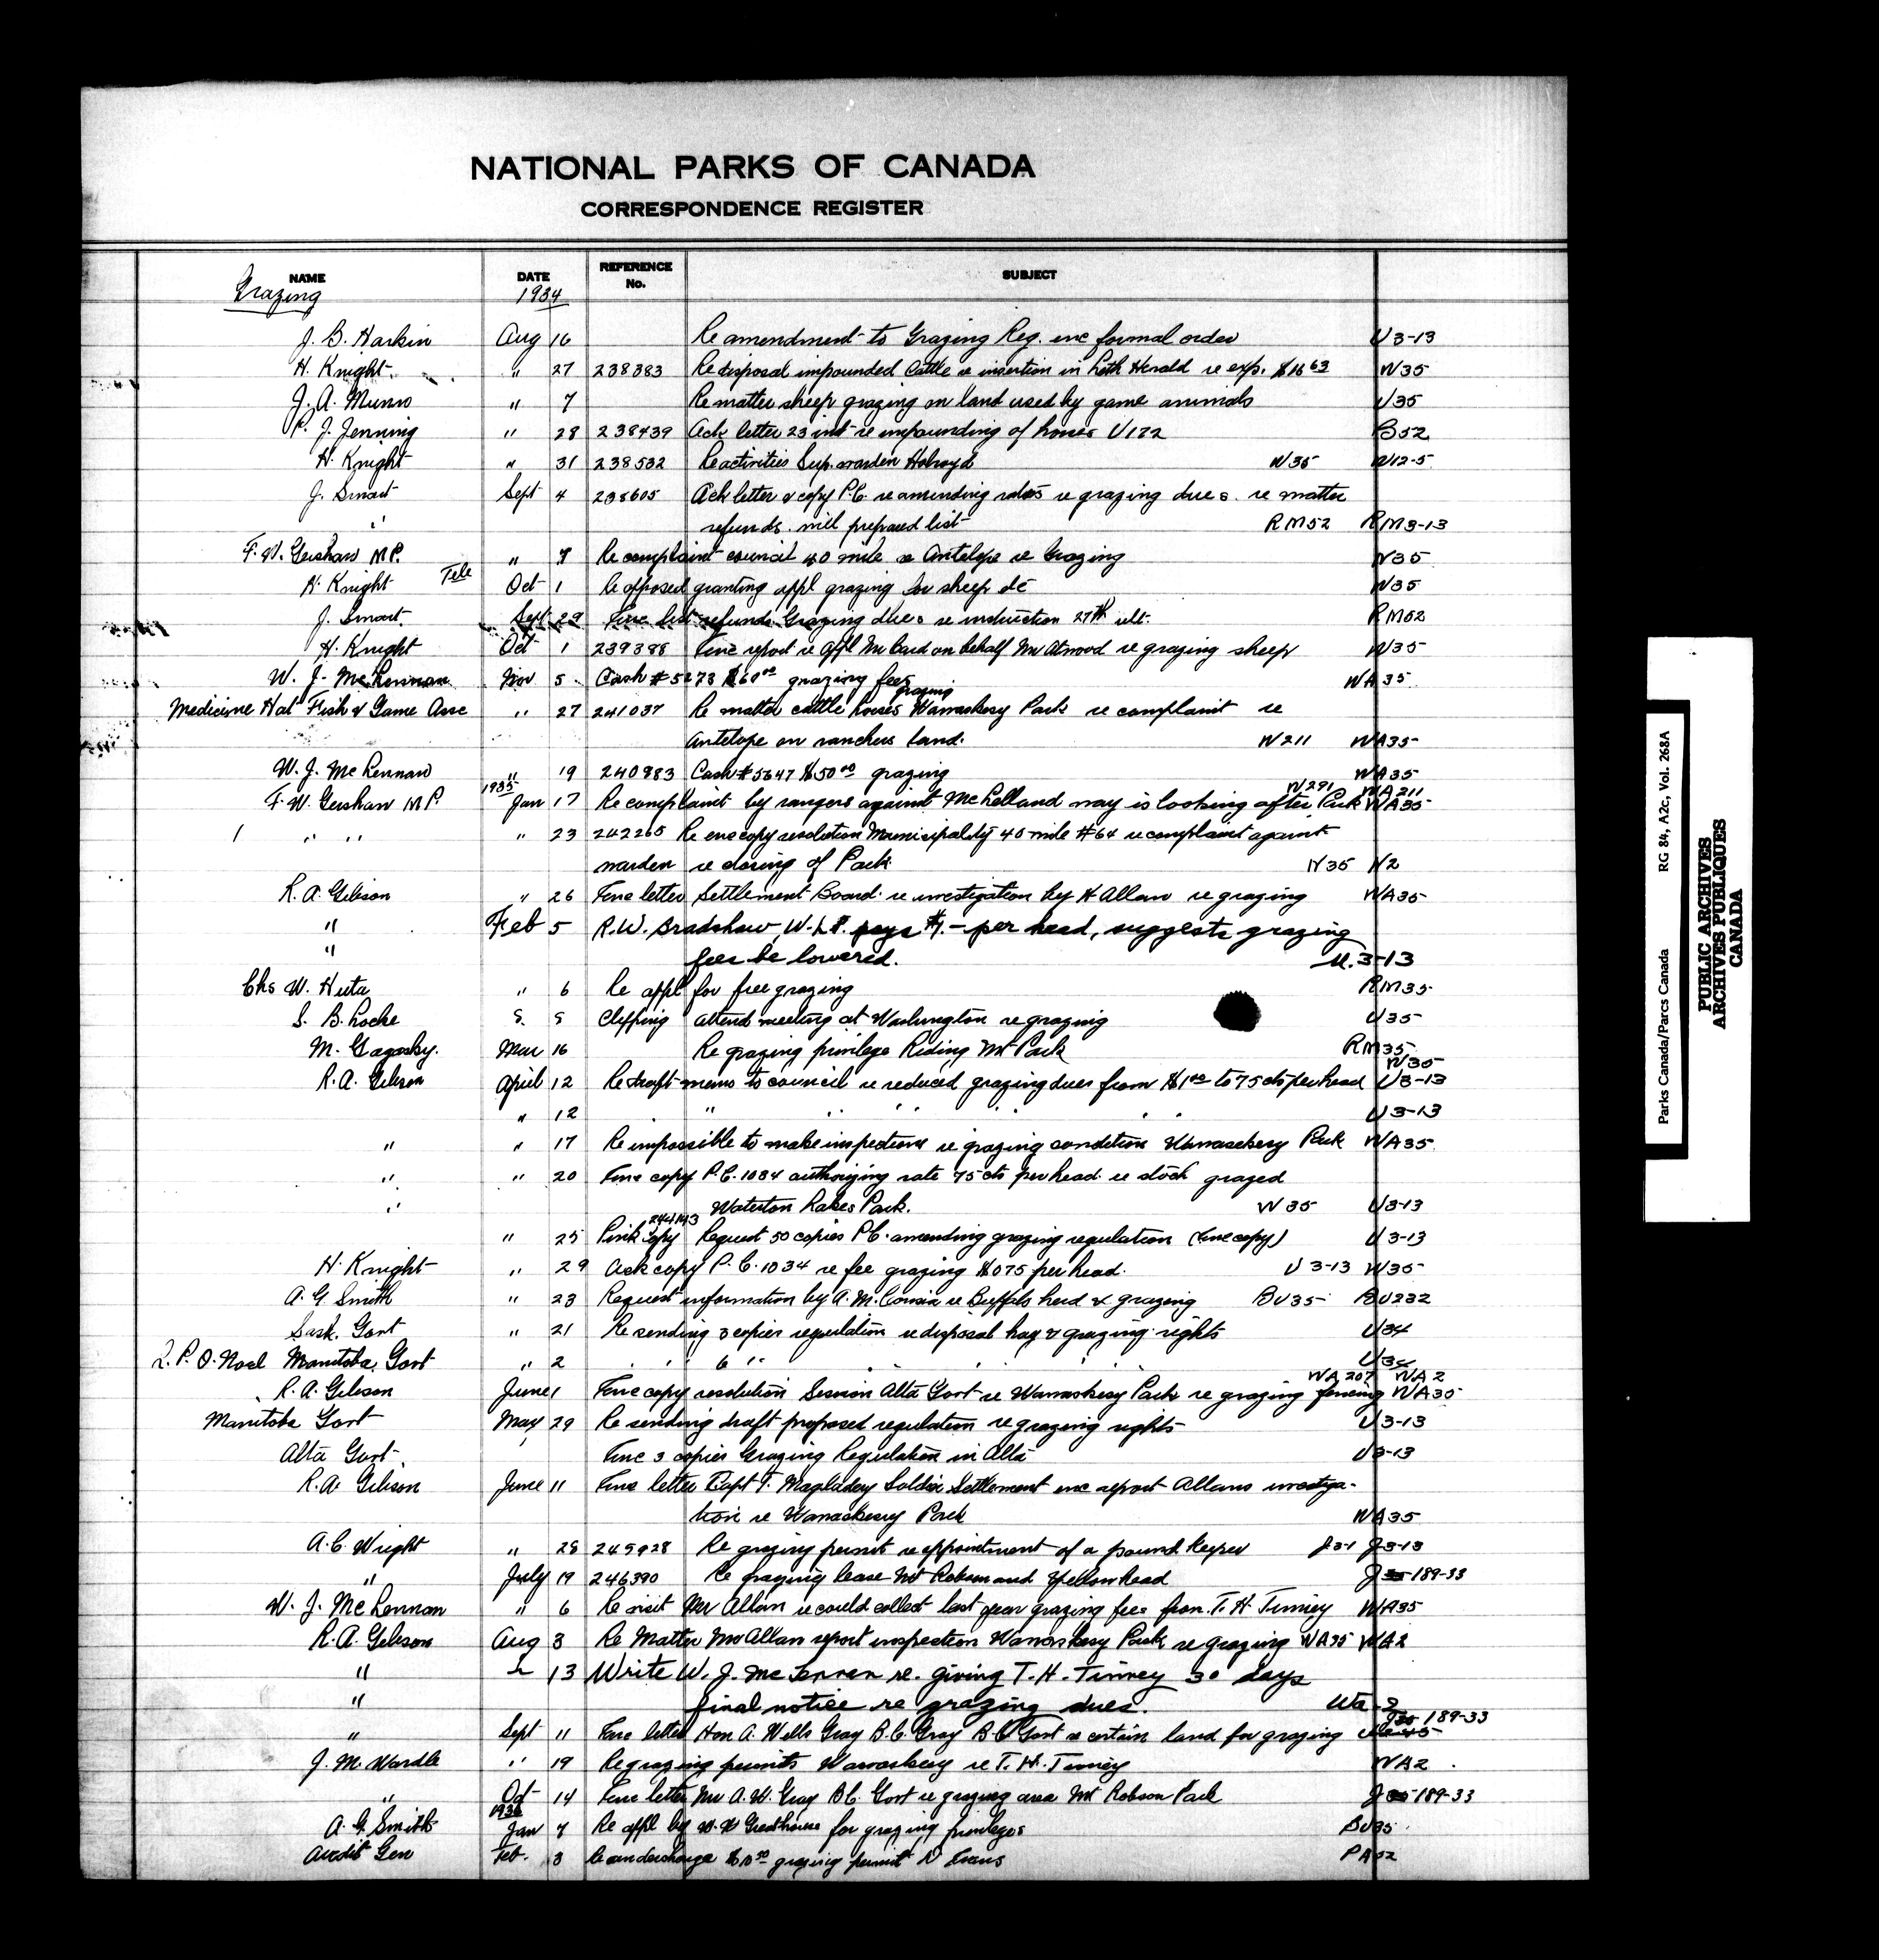 NATIONAL PARKS OF CANADA
CORRESPONDENCE REGISTER
NAME DATE REFERENCE No. SUBJECT
Grazing 1934
J. B. Harkin Aug 16 Re amendment to Grazing Reg. enc formal order U3-13
H. Knight " 27 238383 Re disposal impounded Cattle re insertion in Leth Herald re exp. $16 63 W35
J. A. Munro " 7 Re matter sheep grazing on land used by game animals U35
P. J. Jenning " 28 238439 Ack letter 23 inst re impounding of horses U172 B52
H. Knight " 31 238532 Re activities Sup. warden Holroyd W35 W12-5
J. Smart Sept 4 238605 Ack letter & copy P.C. re amending rates re grazing dues. re matter
" refunds. will prepared list RM52 RM3-13
F. W. Gershaw M.P. " 7 Re complaint council 40 mile re Antelope re Grazing N35
H. Knight Tele Oct 1 Re opposed granting appl grazing for sheep etc W35
J. Smart Sept 29 Enc list refunds Grazing dues re instruction 27th ult. RM52
H. Knight Oct 1 239388 Enc report re appl Mr Card on behalf Mr Atwood re grazing sheep W35
W. J. McLennan Nov 5 Cash #5273 $60 00 grazing fees WA35
Medicine Hat Fish & Game Assc " 27 241037 Re matter cattle horses grazing Wawaskesy Park re complaint re
Antelope on ranchers land. N211 WA35
W. J. McLennan " 19 240983 Cash #5647 $50 00 grazing WA35
1935 N291 WA211
F. W. Gershaw M.P. Jan 17 Re complaint by rangers against McLelland way is looking after Park WA35
" " " 23 242265 Re enc copy resolution Municipality 40 mile #64 re complaint against
warden re closing of Park. N35 N2
R. A. Gibson " 26 Enc letter Settlement Board re investigation by H Allam re grazing WA35
" Feb 5 R. W. Bradshaw, W.L.P. pays $1.- per head, suggests grazing
" fees be lowered. U.3-13
Chs W. Huta " 6 Re appl for free grazing RM35
S. B. Locke S. 5 Clipping attend meeting at Washington re grazing U35
M. Gagosky. Mar 16 Re grazing privilege Riding Mt Park RM35
W35
R. A. Gibson April 12 Re draft memo to council re reduced grazing dues from $1 00 to 75 cts per head U3-13
" 12 " " " " " U3-13
" " 17 Re impossible to make inspections re grazing condition Wawaskesy Park WA35
" " 20 Enc copy P.C. 1034 authorizing rate 75 cts per head re stock grazed
" Waterton Lakes Park. W35 U3-13
" 25 Pink copy Request 50 copies P.C. amending grazing regulation (Enc copy) U3-13
H. Knight " 29 Ack copy P.C. 1034 re fee grazing $075 per head. U3-13 W35
A. G. Smith " 23 Request information by A. M. Cousin re Buffalo herd & grazing BU35 BU232
Sask. Govt " 21 Re sending 3 copies regulation re disposal hay & grazing rights U34
L. P. O. Noel Manitoba Govt " 2 " " 6 " " " " U34
WA207 WA2
R. A. Gibson June 1 Enc copy resolution Session Alta Govt re Wawaskesy Park re grazing fencing WA35
Manitoba Govt May 29 Re sending draft proposed regulation re grazing rights U3-13
Alta Govt " Enc 3 copies Grazing Regulation in Alta U3-13
R. A. Gibson June 11 Enc letter Capt T. Magladery Soldier Settlement enc report Allams investiga-
tion re Wawaskesy Park WA35
A. C. Wright " 28 245928 Re grazing permit re appointment of a pound keeper J3-1 J3-13
" July 19 246390 Re grazing lease Mt Robson and Yellowhead J 189-33
W. J. McLennan " 6 Re visit Mr Allam re could collect last year grazing fees from T. H. Tinney WA35
R. A. Gibson Aug 3 Re Matter Mr Allan report inspection Wawaskesy Park re grazing WA35 WA2
" " 13 Write W. J. McLennan re. giving T. H. Tinney 30 days
" final notice re grazing dues. Wa-2
" Sept 11 Enc letter Hon A. Wells Gray B.C. Gray B.C Govt re certain land for grazing J35 189-33
J. M. Wardle " 19 Re grazing permits Wawaskesy re T. H. Tinney WA2
" Oct 14 Enc letter Mr A. W. Gray B.C. Govt re grazing area Mt Robson Park J 189-33
1936
A. G. Smith Jan 7 Re appl by W. W Greathouse for grazing privileges BU35
Audit Gen Feb. 3 Re undercharge $10 50 grazing permit N Evans PA52
Parks Canada/Parcs Canada RG 84, A2c, Vol. 268A
PUBLIC ARCHIVES
ARCHIVES PUBLIQUES
CANADA